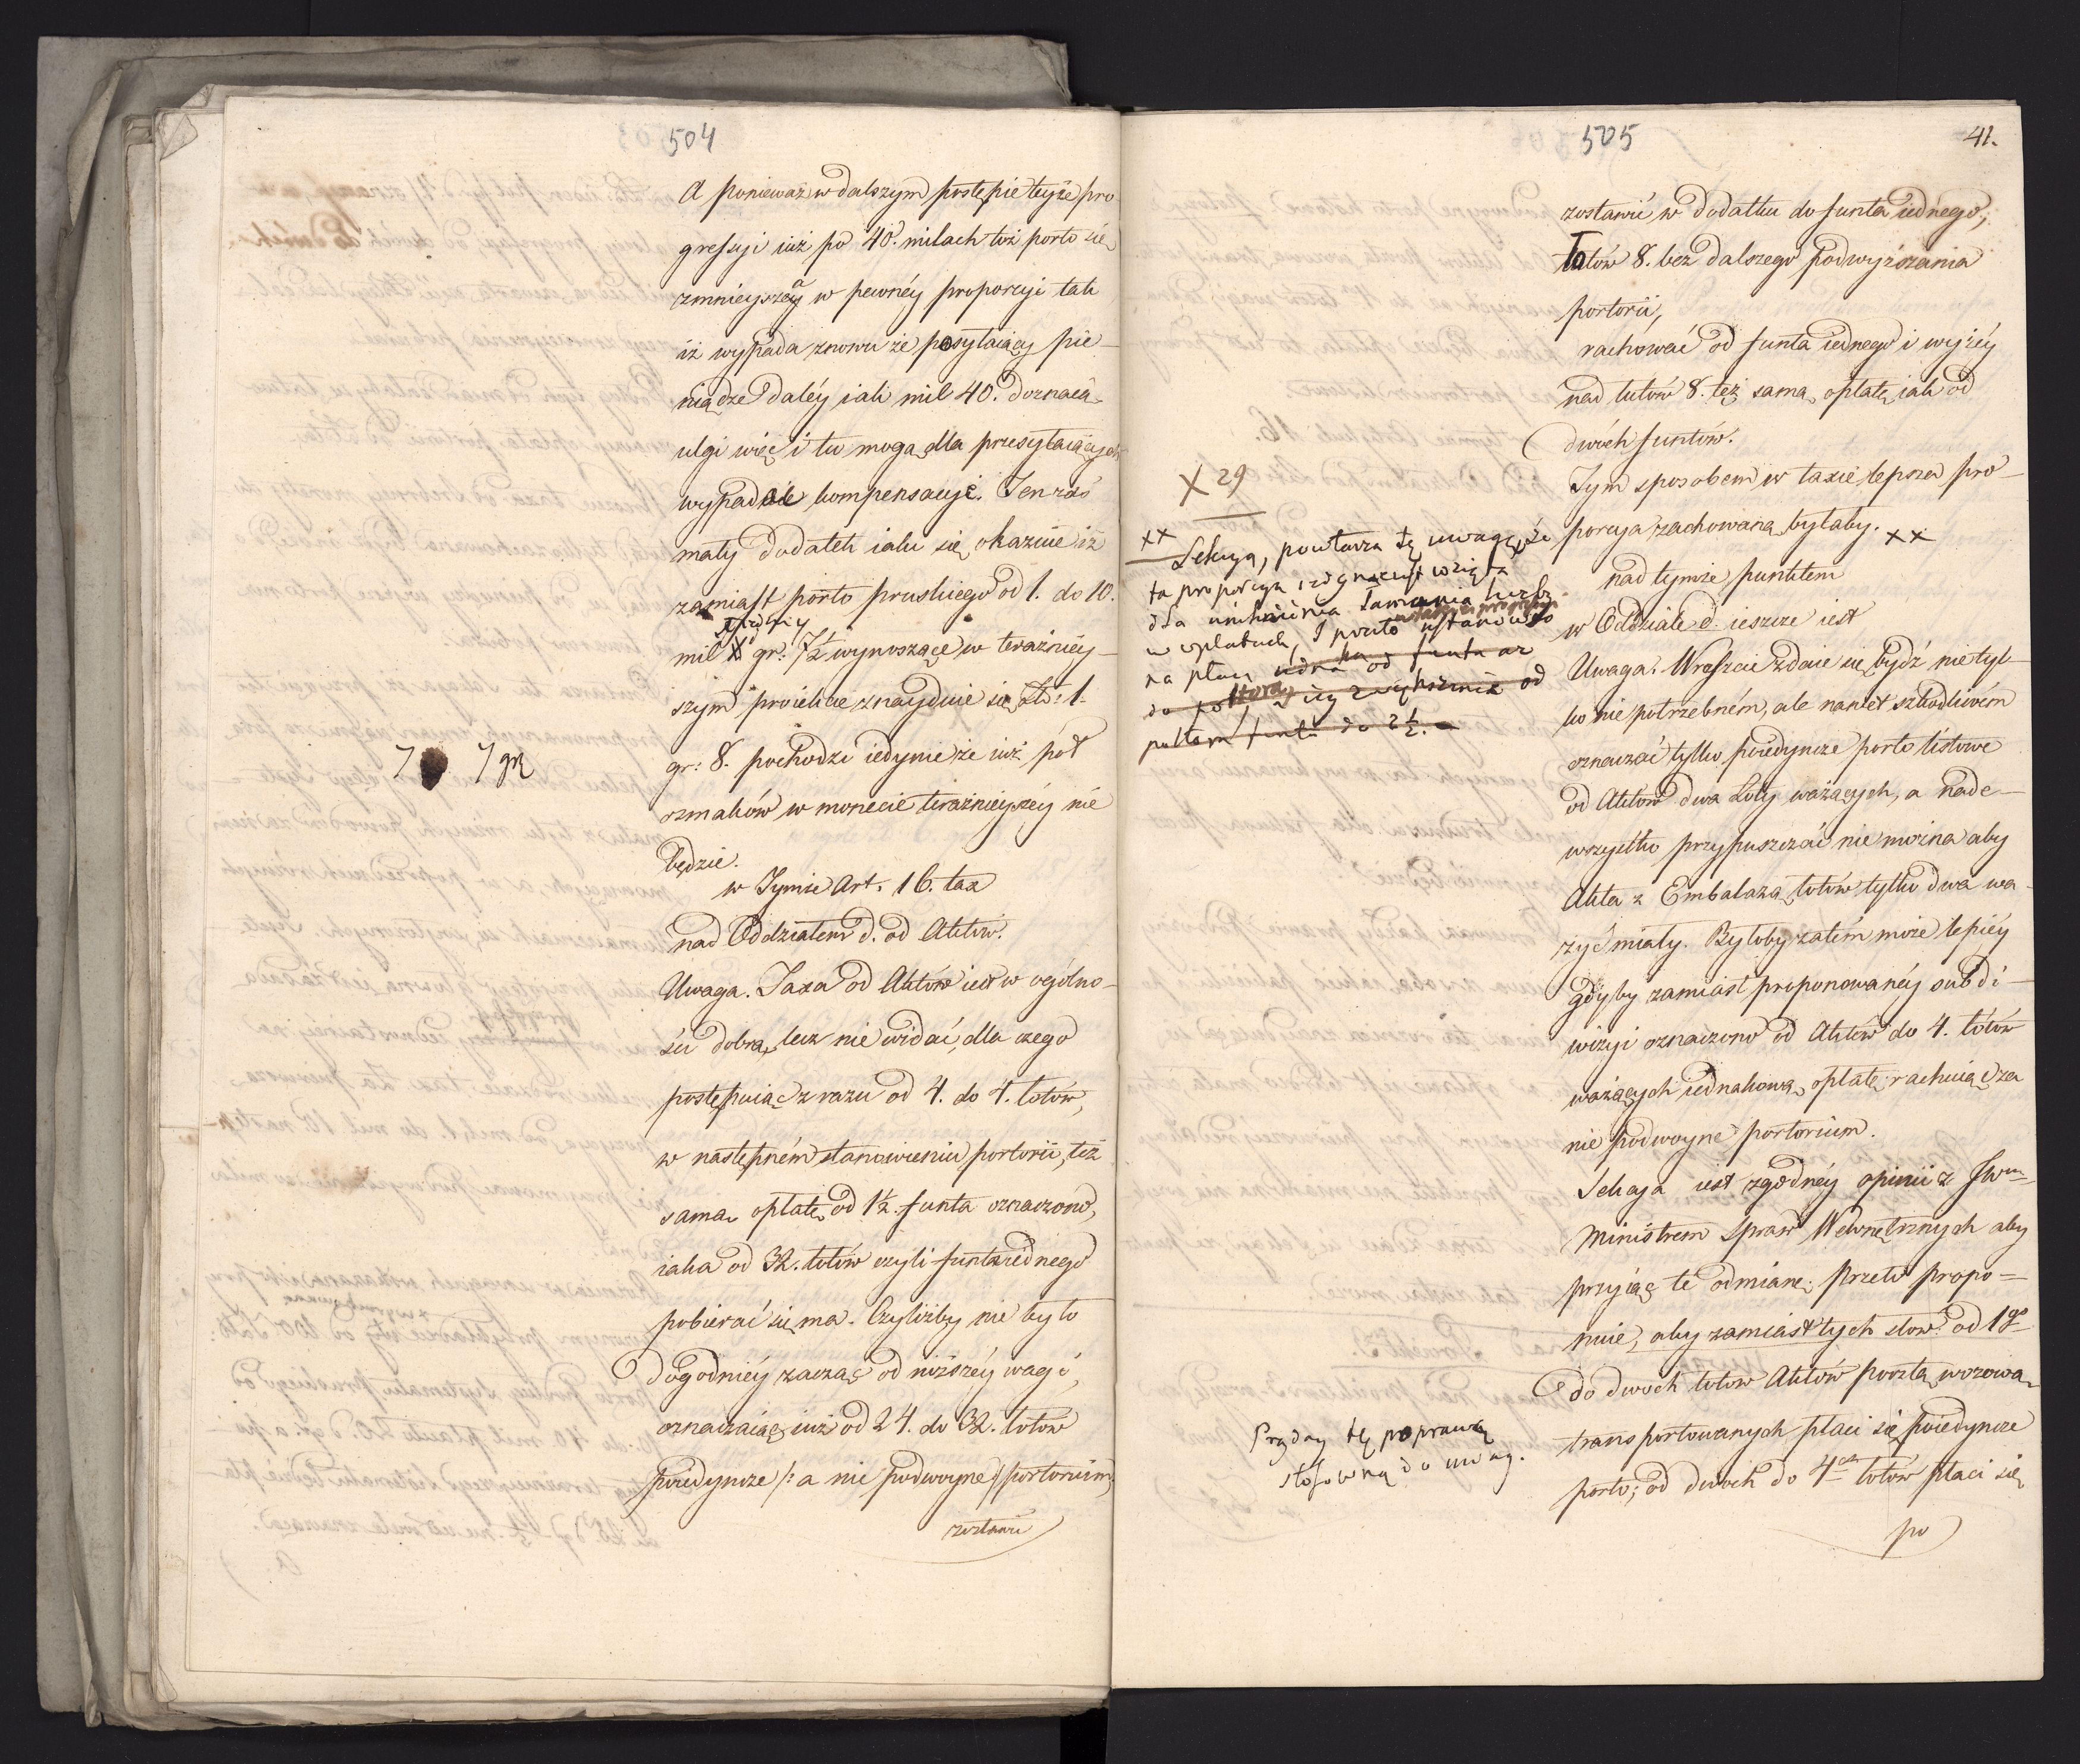 504
A ponieważ w dalszym postępie teyże pro
gressyi iuż po 40. milach toż porto się
zmnieysza w pewnéy proporcyi tak
iż wypada znowu że posyłaiący pie-
niądze daléy iak mil 40. doznaią
ulgi więc i tu mogą dla przesyłaiących
wypadać kompensacye. Ten zaś
mały dodatek iaki się okazuie iż
zamiast porto pruskiego od 1. do 10.
mil gr: 7½ wynoszące w teraźniéy-
szym proiekcie znayduie się Zł: 1.
gr: 8. pochodzi iedynie że iuż pół
szmaków w monecie teraźnieyszéy nie
będzie.
7 7 gr
w Tymże Art. 16. tax
nad Oddziałem d. od Aktów.
Uwaga. Taxa od Aktów iest w ogólno-
ści dobra, lecz nie widać, dla czego
postępuiąc zrazu od 4. do 4. łotów,
w następném stanowieniu portorii, też
samą opłatę od 1½ funta oznaczono,
iaka od 32. łotów czyli funta iednego
pobierać się ma. Czyliżby nie było
dogodniéy zacząć od niższéy wagi,
oznaczaiąc iuż od 24. do 32. łotów
poiedyncze /: a nie podwoyne :/ portorium,
zostawić
505
41.
zostawić w dodatku do funta iednego,
łotów 8. bez dalszego podwyższania
portorii,
rachować od funta iednego i wyżéy
nad łutów 8. też samą opłatę iak od
dwóch funtów.
Tym sposobem w taxie lepsza pro-
porcya zachowana byłaby. xx
X 29
xx
Sekcya, powtarza tę uwagę, że
ta proporcya
dla uniknienia łamania liczby
w opłatach, i porto
na od funta az
do od
funta do 2½.
nad tymże punktem
w Oddziale d. ieszcze iest
Uwaga. Wreszcie zdaie się bydź nietyl-
ko nie potrzebném, ale nawet szkodliwém
oznaczać tylko poiedyncze porto listowe
od Aktów dwa Łoty ważących, a nade-
wszystko przypuszczać nie można aby
Akta z Embalażą łotów tylko dwa wa-
żyć miały. Byłoby zatém może lepiéy
gdyby zamiast proponowanéy subdi-
wizyi oznaczono od Aktów do 4. łotów
ważących iednakową opłatę rachuiąc za
nie podwoyne portorium.
Sekcya iest zgodnéy opinii z JW
Ministrem Spraw Wewnętrznych aby
przyiąć te odmianę: przeto propo=
nuie, aby zamiast tych słow: od 1go
do dwoch łotow Aktów pocztą wozową
transportowanych płaci się poiedyncze
porto; od dwoch do 4ech łotów płaci się
po
Przyday tę poprawkę
stosowną do uwag.